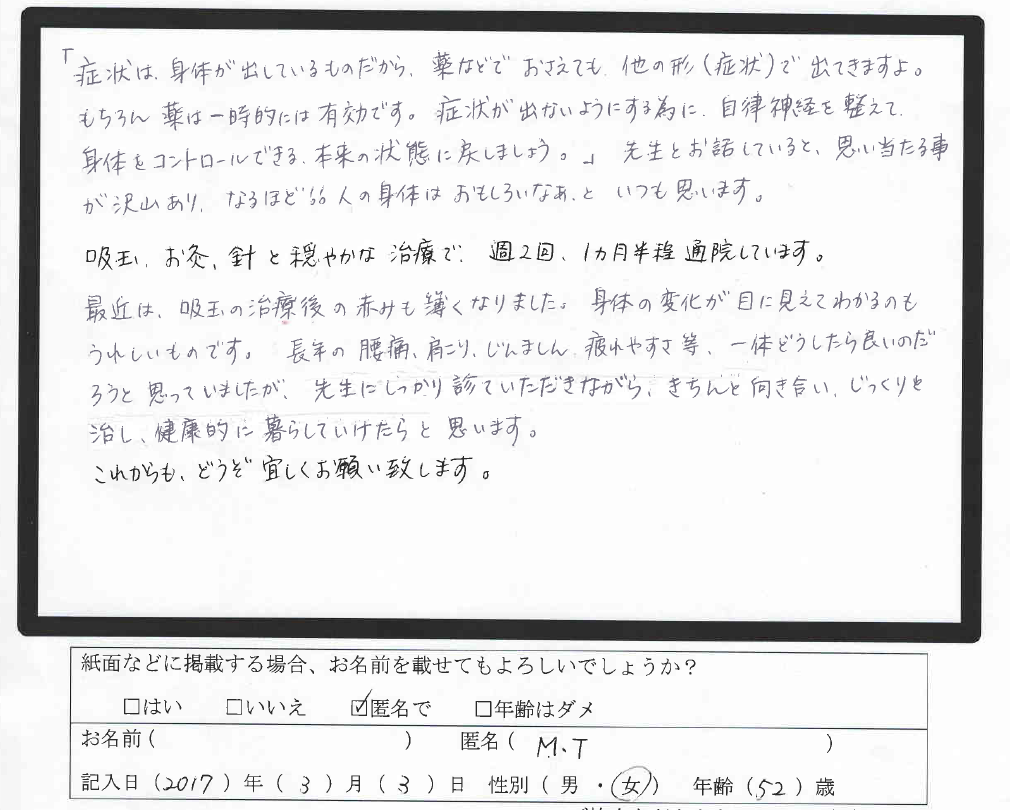 「症状は、身体が出しているものだから、薬などでおさえても、他の形（症状）で出てきますよ。
もちろん薬は一時的には有効です。症状が出ないようにする為に、自律神経を整えて、
身体をコントロールできる、本来の状態に戻しましょう。」先生とお話していると、思い当たる事
が沢山あり、なるほど〝人の身体はおもしろいなあ、といつも思います。
吸玉、お灸、針と穏やかな治療で、週2回、1カ月半程通院しています。
最近は、吸玉の治療後の赤みも薄くなりました。身体の変化が目に見えてわかるのも
うれしいものです。長年の腰痛、肩こり、じんましん、疲れやすさ等、一体どうしたら良いのだ
ろうと思っていましたが、先生にしっかり診ていただきながら、きちんと向き合い、じっくりと
治し、健康的に暮らしていけたらと思います。
これからも、どうぞ宜しくお願い致します。
紙面などに掲載する場合、お名前を載せてもよろしいでしょうか？
□はい □いいえ ☑匿名で □年齢はダメ
お名前（ ） 匿名（ M.T ）
記入日（2017）年（3）月（3）日 性別（男・女） 年齢（52）歳